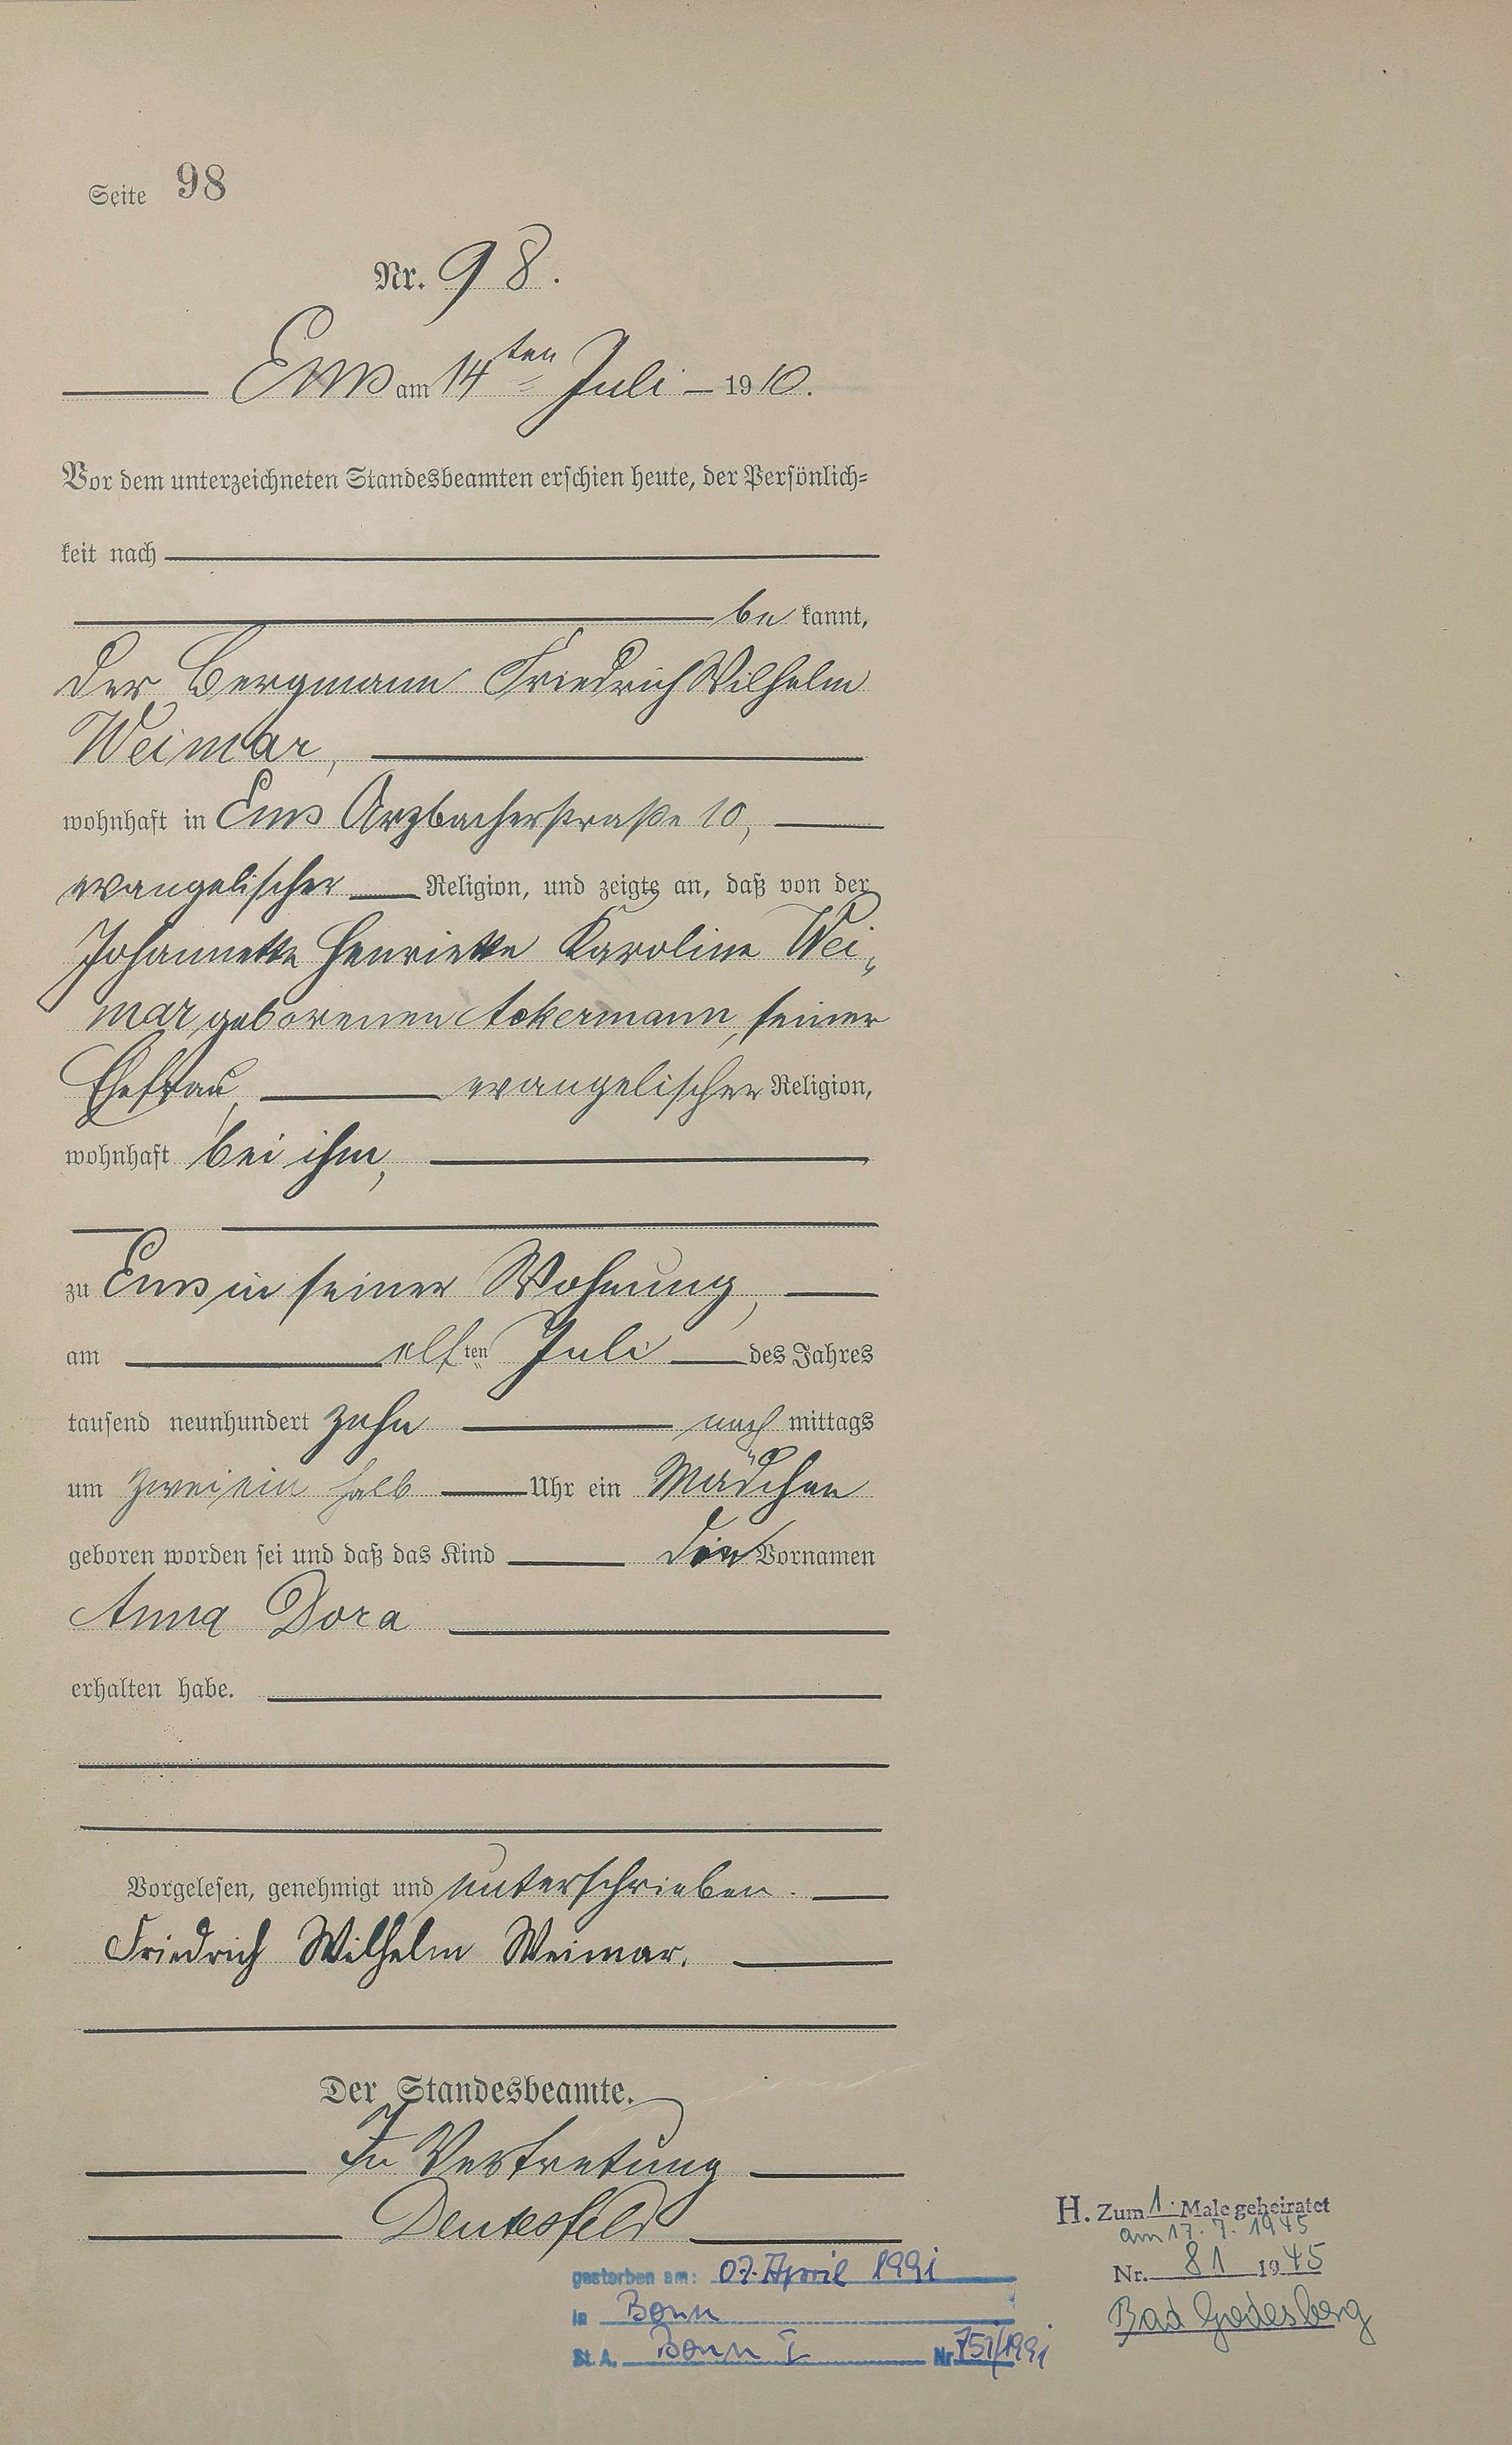 Seite 98
Nr. 98.
Ems am 14ten Juli 1910.
Vor dem unterzeichneten Standesbeamten erschien heute, der Persönlich-
keit nach
be kannt,
der Bergmann Friedrich Wilhelm
Weimar,
wohnhaft in Ems Arzbacherstraße 10,
evangelischer Religion, und zeigte an, daß von der
Johannette Henriette Karoline Wei-
mar geborenen Ackermann, seiner
Ehefrau, evangelischer Religion,
wohnhaft bei ihm,
zu Ems in seiner Wohnung,
am elften Juli des Jahres
tausend neunhundert zehn nach mittags
um zwei ein halb Uhr ein Mädchen
geboren worden sei und daß das Kind die Vornamen
Anna Dora
erhalten habe.
Vorgelesen, genehmigt und unterschrieben.
Friedrich Wilhelm Weimar.
Der Standesbeamte.
In Vertretung
Deutesfeld
H. Zum 1. Male geheiratet
am 17. 7. 1945
Nr. 81 1945
Bad Godesberg
gestorben am: 07. April 1991
in Bonn
St. A. Bonn I Nr. 751/1991